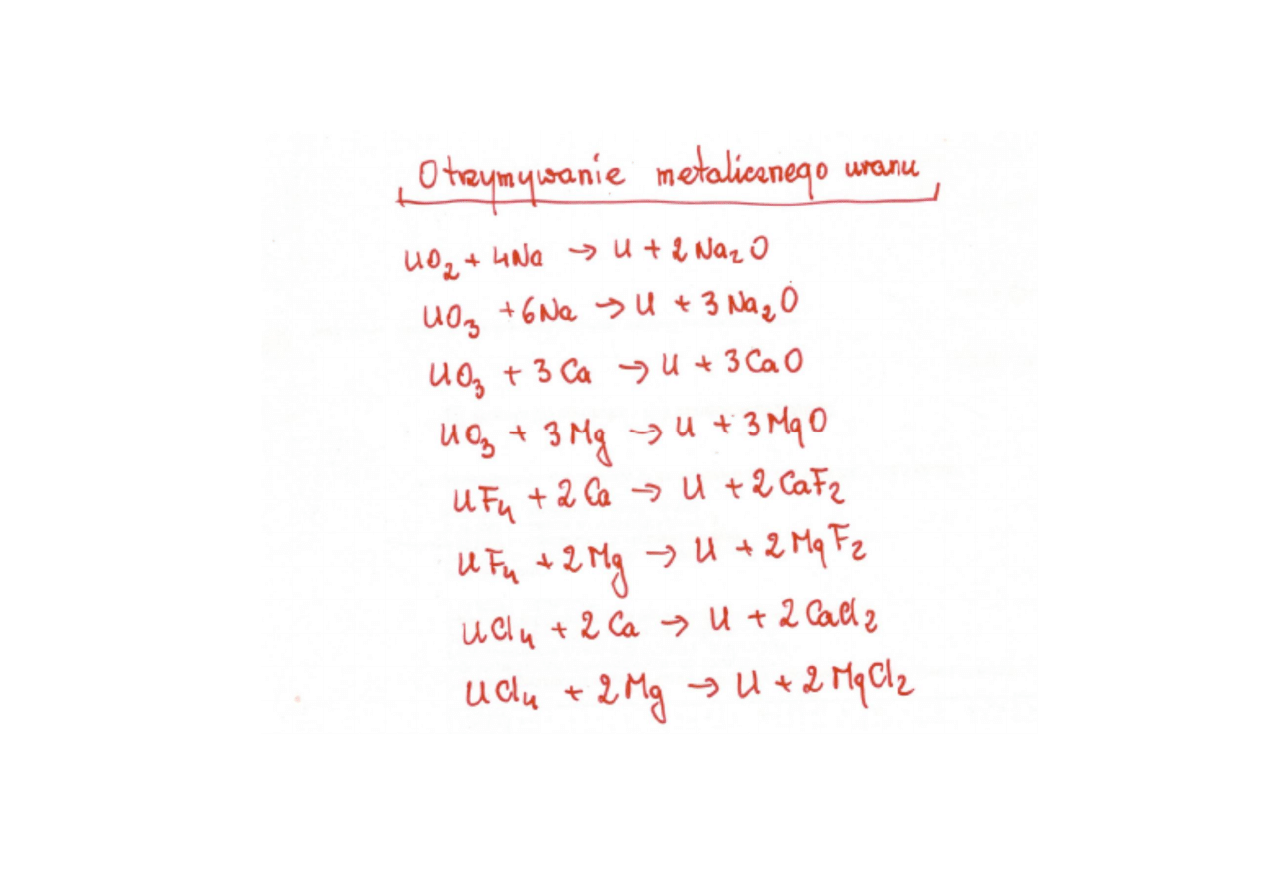 Otrzymywanie metalicznego uranu
UO₂ + 4Na → U + 2Na₂O
UO₃ + 6Na → U + 3Na₂O
UO₃ + 3Ca → U + 3CaO
UO₃ + 3Mg → U + 3MgO
UF₄ + 2Ca → U + 2CaF₂
UF₄ + 2Mg → U + 2MgF₂
UCl₄ + 2Ca → U + 2CaCl₂
UCl₄ + 2Mg → U + 2MgCl₂